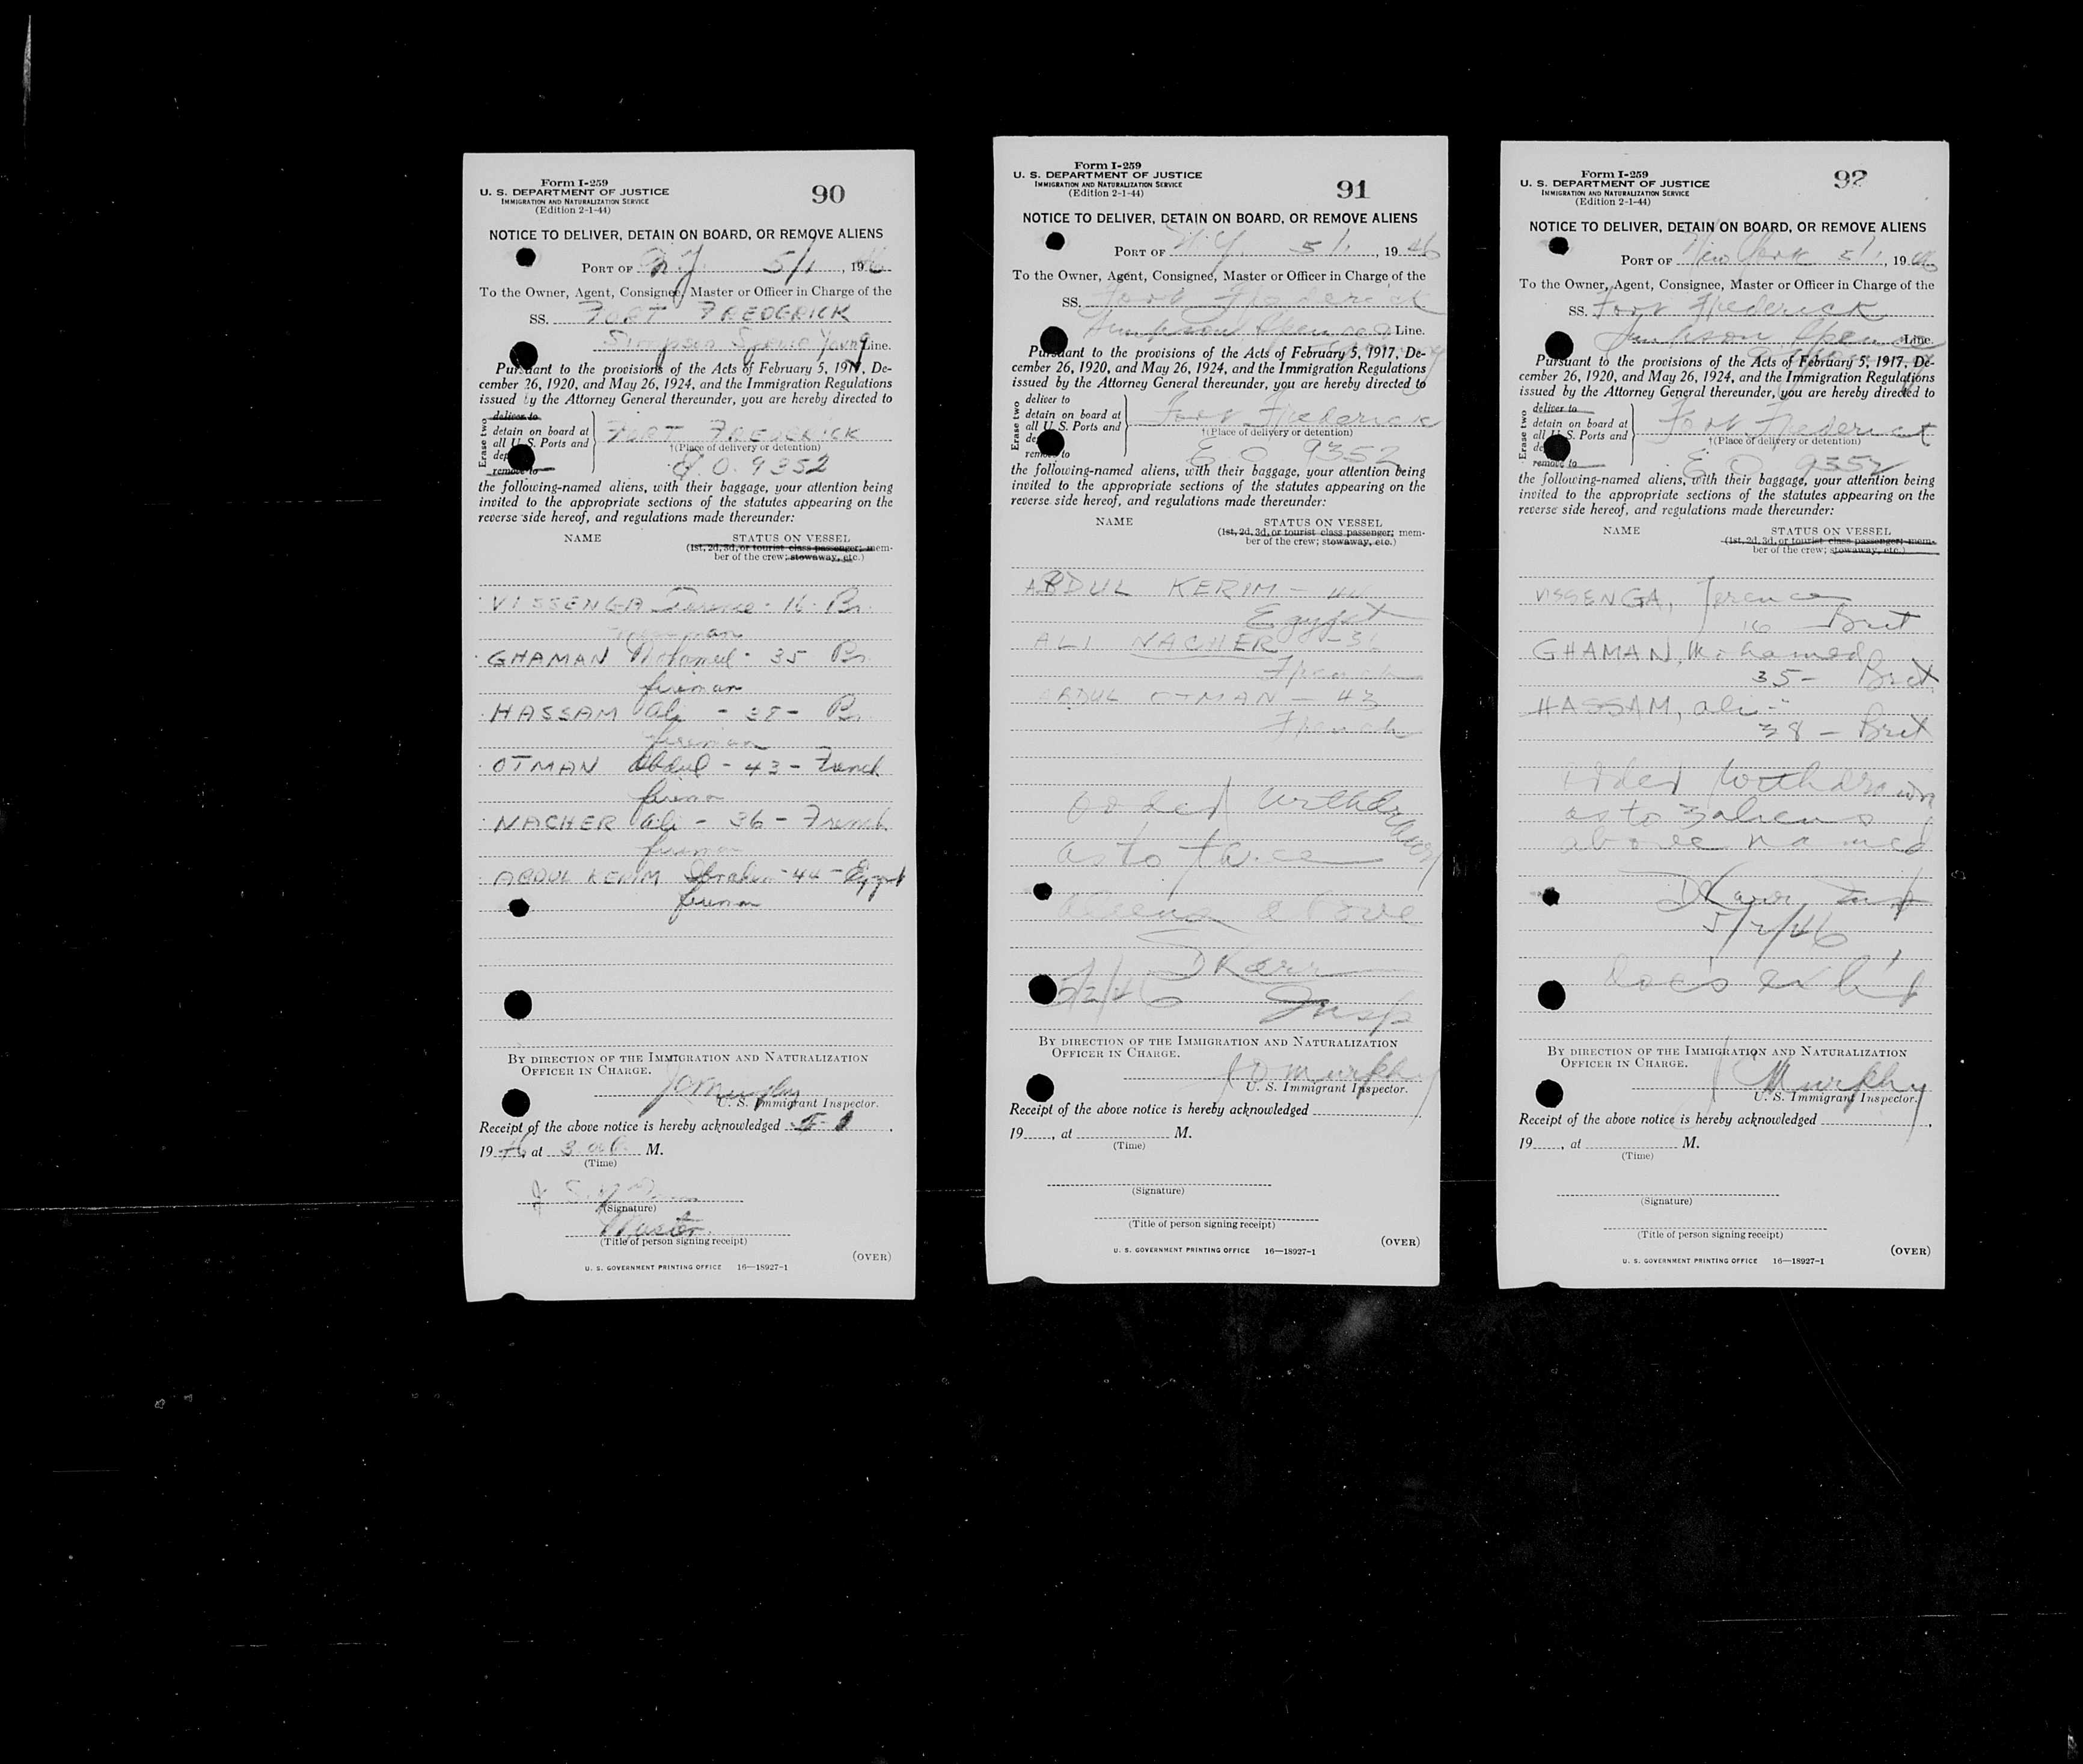 Form I-259
U. S. DEPARTMENT OF JUSTICE
IMMIGRATION AND NATURALIZATION SERVICE
(Edition 2-1-44)
90
NOTICE TO DELIVER, DETAIN ON BOARD, OR REMOVE ALIENS
PORT OF N.Y. 5/1, 1946
To the Owner, Agent, Consignee, Master or Officer in Charge of the
SS. FORT FREDERICK
Simpson Spence Young Line.
Pursuant to the provisions of the Acts of February 5, 1917, De-
cember 26, 1920, and May 26, 1924, and the Immigration Regulations
issued by the Attorney General thereunder, you are hereby directed to
Erase two
deliver to
detain on board at
all U. S. Ports and
remove to
FORT FREDERICK
†(Place of delivery or detention)
E.O. 9352
the following-named aliens, with their baggage, your attention being
invited to the appropriate sections of the statutes appearing on the
reverse side hereof, and regulations made thereunder:
NAME STATUS ON VESSEL
(1st, 2d, 3d, or tourist class passenger; mem-
ber of the crew; stowaway, etc.)
VISSENGA Terence - 16 - Br.
GHAMAN Mohamed - 35 Br.
fireman
HASSAM Ali - 38 - Br.
fireman
OTMAN Abdul - 43 - French
fireman
NACHER Ali - 36 - French
fireman
ABDUL KERIM Ibrahim - 44 - Egypt
fireman
BY DIRECTION OF THE IMMIGRATION AND NATURALIZATION
OFFICER IN CHARGE.
J O Murphy
U. S. Immigrant Inspector.
Receipt of the above notice is hereby acknowledged 5-1.
1946, at 3 M.
(Time)
(Signature)
Master
(Title of person signing receipt)
(OVER)
U. S. GOVERNMENT PRINTING OFFICE 16—18927-1
Form I-259
U. S. DEPARTMENT OF JUSTICE
IMMIGRATION AND NATURALIZATION SERVICE
(Edition 2-1-44)
91
NOTICE TO DELIVER, DETAIN ON BOARD, OR REMOVE ALIENS
PORT OF N.Y. 5/1, 1946
To the Owner, Agent, Consignee, Master or Officer in Charge of the
SS. Fort Frederick
Simpson Spence & Young Line.
Pursuant to the provisions of the Acts of February 5, 1917, De-
cember 26, 1920, and May 26, 1924, and the Immigration Regulations
issued by the Attorney General thereunder, you are hereby directed to
Erase two
deliver to
detain on board at
all U. S. Ports and
remove to
Fort Frederick
†(Place of delivery or detention)
E O 9352
the following-named aliens, with their baggage, your attention being
invited to the appropriate sections of the statutes appearing on the
reverse side hereof, and regulations made thereunder:
NAME STATUS ON VESSEL
(1st, 2d, 3d, or tourist class passenger; mem-
ber of the crew; stowaway, etc.)
ABDUL KERIM - 44
Egypt
ALI NACHER - 36
French
ABDUL OTMAN - 43
French
Order withdrawn
as to three
aliens above
D Karr
5/2/46 Insp
BY DIRECTION OF THE IMMIGRATION AND NATURALIZATION
OFFICER IN CHARGE.
J O Murphy
U. S. Immigrant Inspector.
Receipt of the above notice is hereby acknowledged
19, at M.
(Time)
(Signature)
(Title of person signing receipt)
(OVER)
U. S. GOVERNMENT PRINTING OFFICE 16—18927-1
Form I-259
U. S. DEPARTMENT OF JUSTICE
IMMIGRATION AND NATURALIZATION SERVICE
(Edition 2-1-44)
92
NOTICE TO DELIVER, DETAIN ON BOARD, OR REMOVE ALIENS
PORT OF New York 5/1, 1946
To the Owner, Agent, Consignee, Master or Officer in Charge of the
SS. Fort Frederick
Simpson Spence Line.
Pursuant to the provisions of the Acts of February 5, 1917, De-
cember 26, 1920, and May 26, 1924, and the Immigration Regulations
issued by the Attorney General thereunder, you are hereby directed to
Erase two
deliver to
detain on board at
all U. S. Ports and
remove to
Fort Frederick
†(Place of delivery or detention)
E O 9352
the following-named aliens, with their baggage, your attention being
invited to the appropriate sections of the statutes appearing on the
reverse side hereof, and regulations made thereunder:
NAME STATUS ON VESSEL
(1st, 2d, 3d, or tourist class passenger; mem-
ber of the crew; stowaway, etc.)
VISSENGA, Terence
16 Brit
GHAMAN, Mohamed
35 - Brit
HASSAM, Ali -
38 - Brit
Order withdrawn
as to 3 aliens
above named
D Karr, Insp
5/2/46
BY DIRECTION OF THE IMMIGRATION AND NATURALIZATION
OFFICER IN CHARGE.
J O Murphy
U. S. Immigrant Inspector.
Receipt of the above notice is hereby acknowledged
19, at M.
(Time)
(Signature)
(Title of person signing receipt)
(OVER)
U. S. GOVERNMENT PRINTING OFFICE 16—18927-1